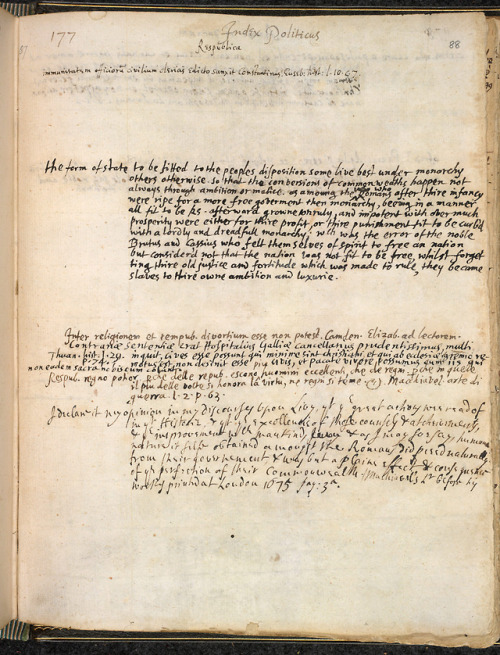 177
Index Politicus
88
Respublica
immunitatem officiorum civilium clericis edicto sanxit Constantinus. Euseb. hist. l. 10. c. 7
the form of state to be fitted to the peoples disposition some live best under monarchy
others otherwise. so that the conversions of commonwealths happen not
always through ambition or malice. as amoung the Romans who after thire infancy
were ripe for a more free goverment then monarchy, beeing in a manner
all fit to be Ks. afterward growne unruly, and impotent with over much
prosperity were either for thire profit, or thire punishment fit to be curb'd
with a lordly and dreadfull monarchy; wch was the error of the noble
Brutus and Cassius who felt themselves of spirit to free an nation
but consider'd not that the nation was not fit to be free, whilst forget
ting thire old justice and fortitude which was made to rule, they became
slaves to thire owne ambition and luxurie.
Inter religionem et rempub. divortium esse non potest. Camden. Elizab. ad lectorem.
Contrariae sententiae erat Hospitalius Galliae cancellarius prudentissimus, multi
Thuan. hist. l. 29. inquit, cives esse possunt qui minime sint christiani, et qui ab ecclesiae gremio re-
p. 74. cedit, civis esse non desinit pacate vivere possumus cum iis qui
non eadem sacra nobiscum colunt.
Respub. regno potior. perche delle repub. escono piu huomini eccellenti, che de regni. perche in quelle
il piu delle volte si honora la virtu, ne regni si teme. Macchiavel arte di
guerra. l. 2. p. 63.
I declared my opinion in my discourses upon Livy, yt ye great actions we read of
in ye
& ye improvement of mankind & as I may so say humane
nature it self obtained amongst the Romans did proceed naturally
from their government & was but a plain effect & consequence
of ye perfection of their Commonwealth Machiavel's Lr before his
works printed at London 1675 pag. 3a.